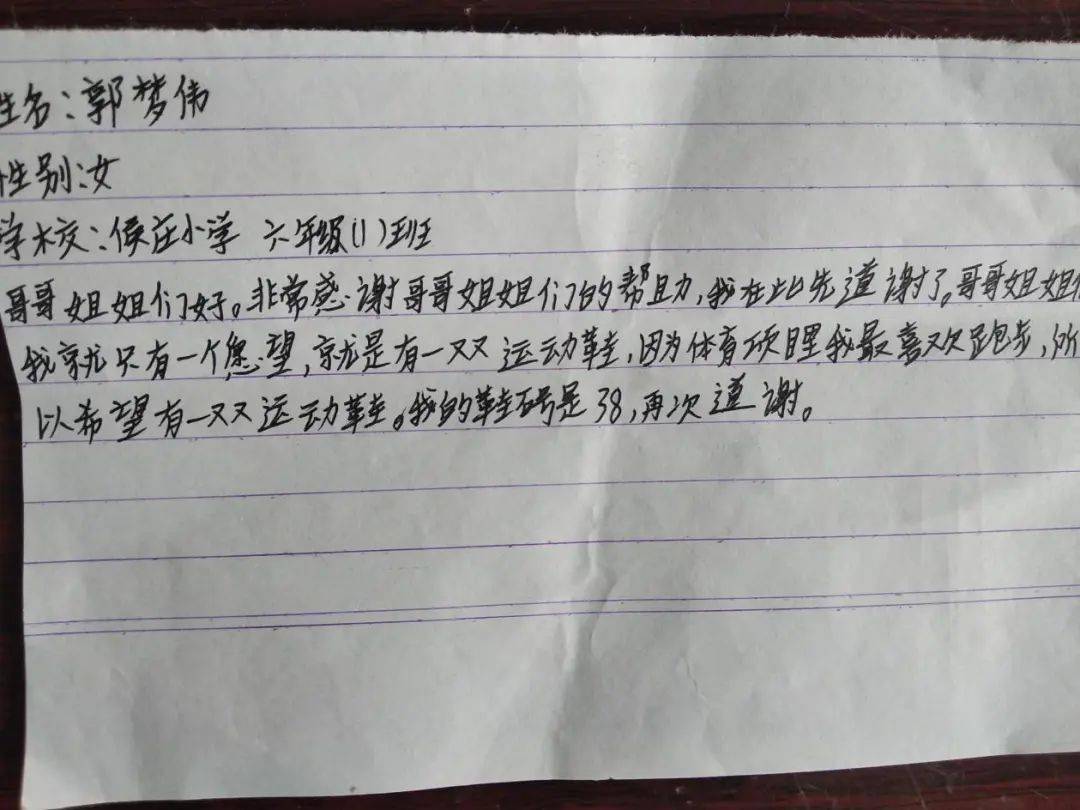 姓名:郭梦伟
性别:女
学校:侯庄小学 六年级(1)班
哥哥姐姐们好。非常感谢哥哥姐姐们的帮助,我在此先道谢了。哥哥姐姐们
我就只有一个愿望,就是有一双运动鞋,因为体育项目里我最喜欢跑步,所
以希望有一双运动鞋。我的鞋码是38,再次道谢。